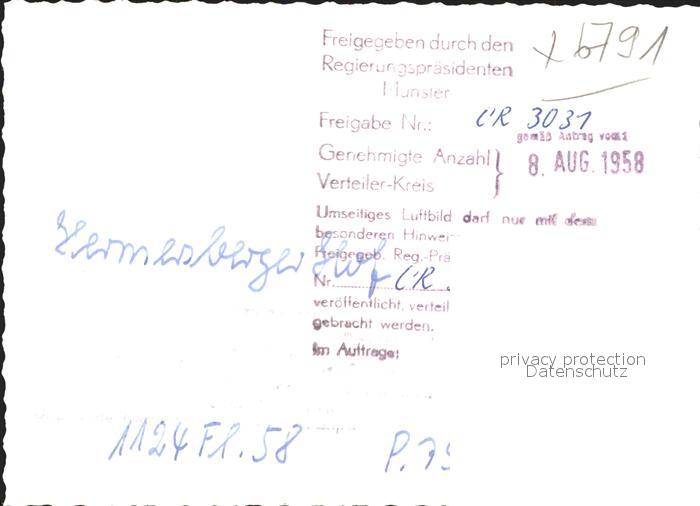 Freigegeben durch den
Regierungspräsidenten
Münster
b791
Freigabe Nr.: CR 3031
gemäß Antrag vom
Genehmigte Anzahl
8. AUG. 1958
Verteiler-Kreis
Umseitiges Luftbild darf nur mit dem
besonderen Hinwei
Freigegeb. Reg.-Prä
Nr. CR
Hermersberger Hof
veröffentlicht, verteil
gebracht werden.
Im Auftrage:
privacy protection
Datenschutz
1124 Fl. 58
P. 79